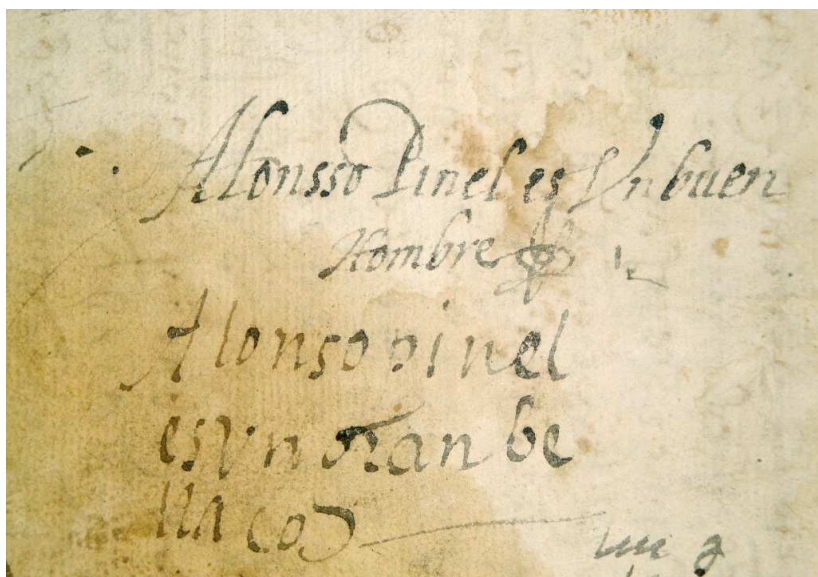 Alonsso Pinel es Vn buen
Hombre
Alonso pinel
es vn gran be
llaco